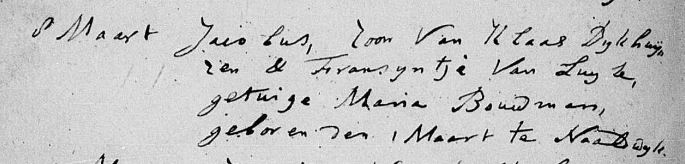 8 Maart Jacobus, Zoon Van Klaas Dykhuy
zen & Fransyntje Van Luyk,
getuige Maria Bouwman,
geboren den 1 Maart te Naaldwyk.